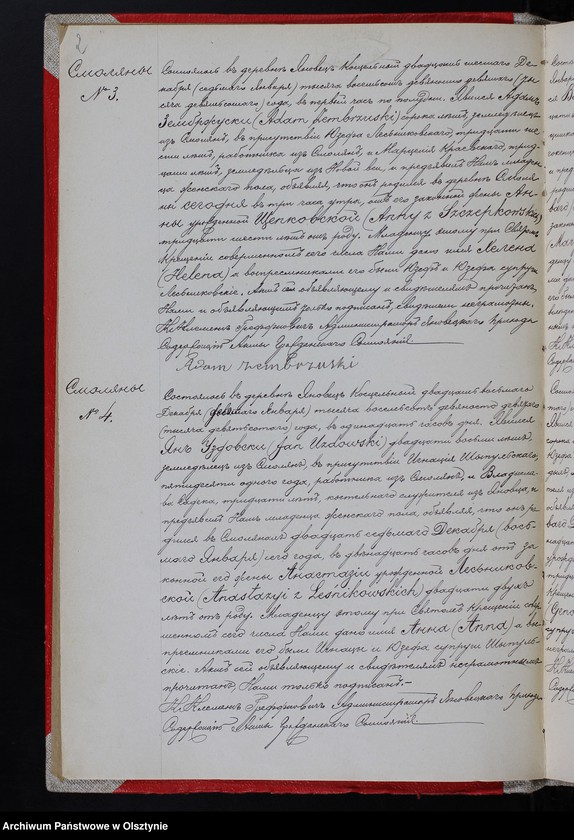 2
Смоляны
№ 3.
Состоялось въ деревнѣ Яновецъ Косцельный двадцатью шестаго Де-
кабря (седьмаго Января) тысяча восемьсотъ девяносто девятаго (ты-
сяча девятьсотаго) года, въ первый часъ по полудни. Явился Адамъ
Зембржуски (Adam Zembrzuski) сорока лѣтъ, земледѣлецъ
изъ Смолянъ, въ присутствіи Юзефа Лесьниковскаго, тридцати ше-
сти лѣтъ, работника изъ Смолянъ, и Марцелія Красескаго, трид-
цати лѣтъ, земледѣльца изъ Новой вси, и предъявилъ Намъ младен-
ца женскаго пола, объявляя, что онъ родился въ деревнѣ Смоля-
ней сегодня въ три часа утра, отъ его законной жены Ан-
ны урожденной Щепковской (Anny z Szczepkowskich)
тридцати шести лѣтъ отъ роду. Младенцу этому при Святомъ
Крещеніи совершенномъ сего числа Нами дано имя Хелена
(Helena) а воспріемниками его были Юзефъ и Юзефа супруги
Лесьниковскіе. Актъ сей объявляющему и свидѣтелямъ прочитанъ,
Нами и объявляющимъ только подписанъ, свидѣтели неграмотны.
Администраторъ Яновецкаго Прихода
Содержащій Акты Гражданскаго Состоянія
Adam Zembrzuski
Смоляны
№ 4.
Состоялось въ деревнѣ Яновецъ Косцельный двадцать восьмаго
Декабря Января) тысяча восемьсотъ девяносто девятаго
(тысяча девятьсотаго) года, въ одинадцать часовъ дня. Явился
Янъ Уздовски (Jan Uzdowski) двадцати восьми лѣтъ,
земледѣлецъ изъ Смолянъ, въ присутствіи Игнація Шыпульскаго,
пятидесяти одного года, работника изъ Смолянъ, и Владисла-
ва тридцати лѣтъ, костельнаго служителя изъ Яновца, и
предъявилъ Намъ младенца женскаго пола объявляя, что онъ ро-
дился въ Смолянахъ двадцать седьмаго Декабря (вось-
маго Января) сего года, въ двѣнадцать часовъ дня отъ за-
конной его жены Анастазіи урожденной Лесьников-
ской (Anastazyi z Lesnikowskich) двадцати двухъ
лѣтъ отъ роду. Младенцу этому при Святомъ Крещеніи совер-
шенномъ сего числа Нами дано имя Анна (Anna) а вос-
пріемниками его были Игнацы и Юзефа супруги Шыпуль-
скіе. Актъ сей объявляющему и свидѣтелямъ неграмотнымъ
прочитанъ, Нами только подписанъ.—
Администраторъ Яновецкаго Прихода
Содержащій Акты Гражданскаго Состоянія
Archiwum Państwowe w Olsztynie